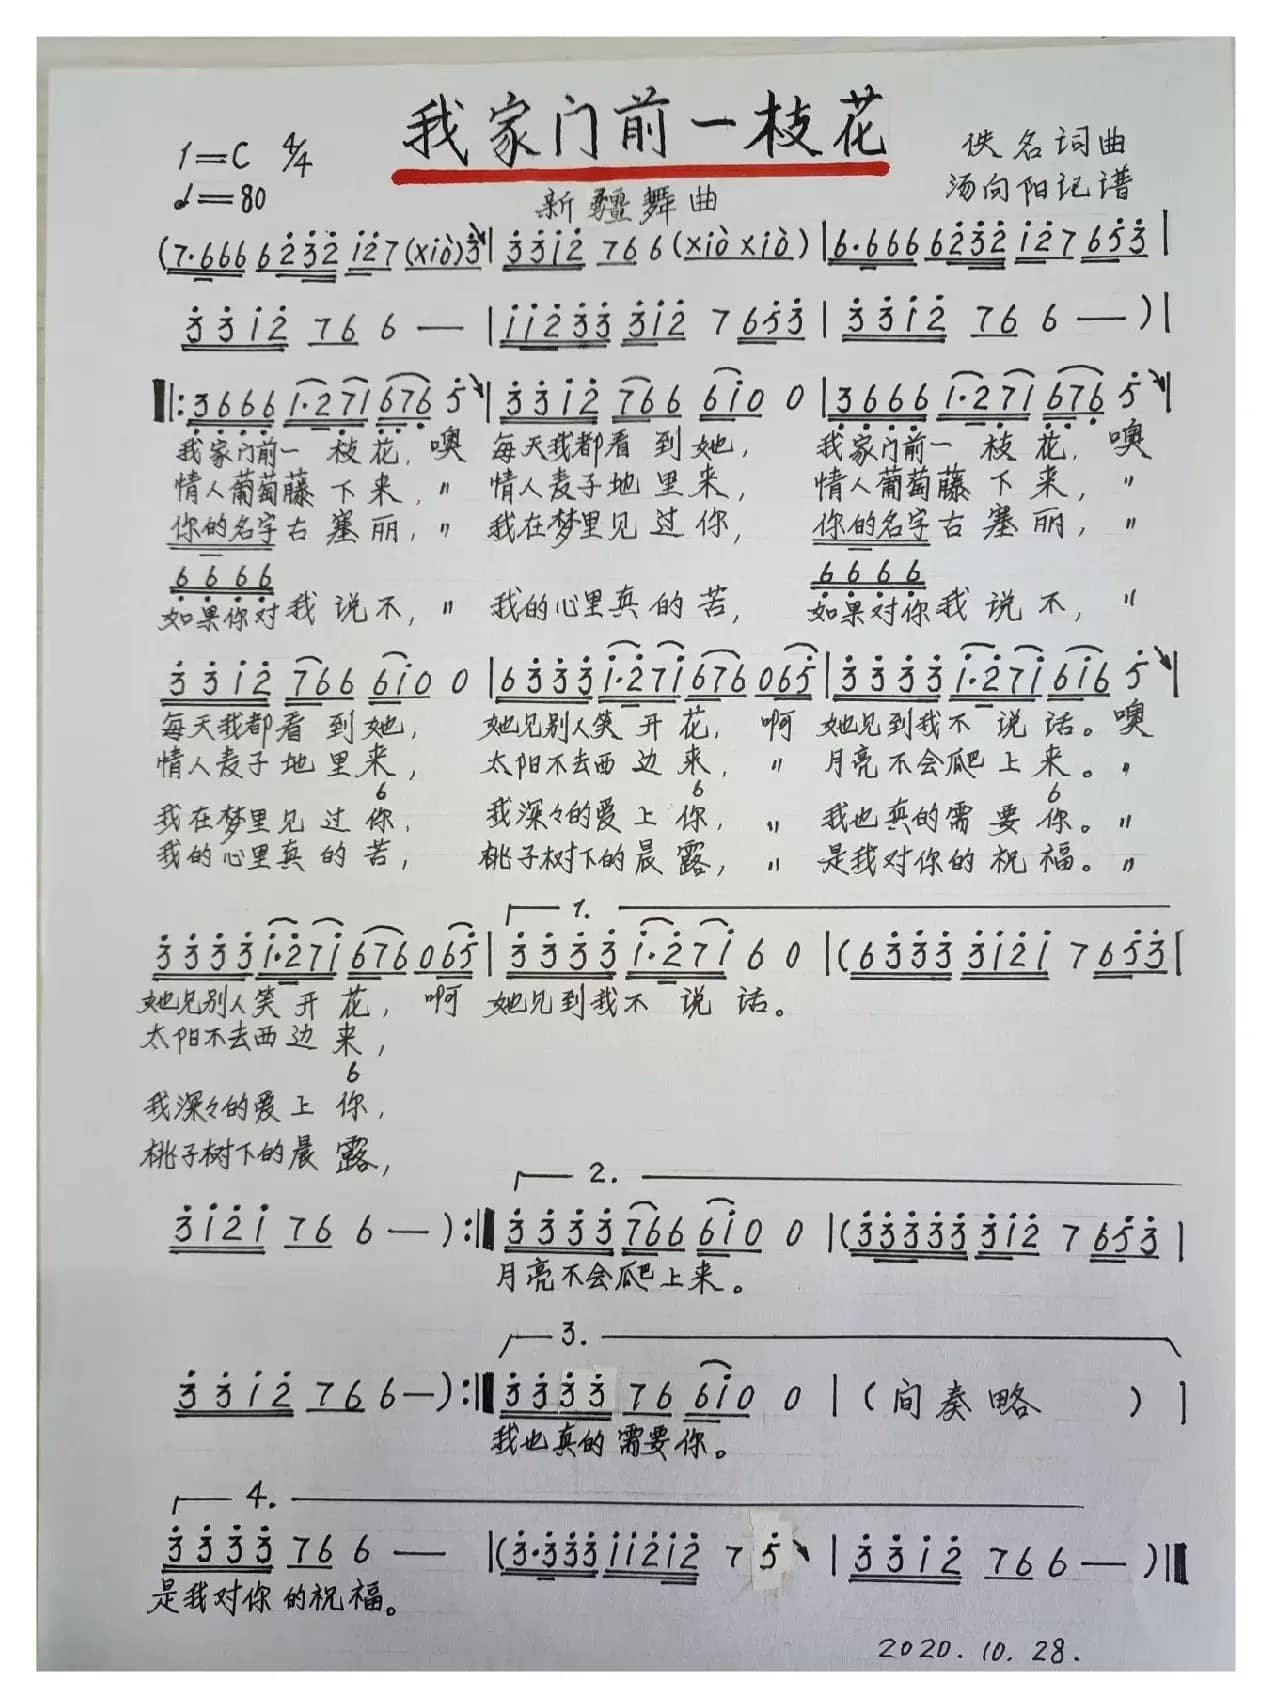 我家门前一枝花
1=C 4/4
佚名词曲
♩=80
新疆舞曲
汤向阳记谱
(7·666 6232 127 (xiò)3 | 3312 766 (xiò xiò) | 6·666 6232 127 653 |
3312 76 6 — | 11233 312 7 653 | 3312 76 6 — ) |
‖: 3666 1·271 676 5 | 3312 766 610 0 | 3666 1·271 676 5 |
我家门前一枝花,噢 每天我都看到她, 我家门前一枝花,噢
情人葡萄藤下来,〃 情人麦子地里来, 情人葡萄藤下来,〃
你的名字古塞丽,〃 我在梦里见过你, 你的名字古塞丽,〃
6666 6666
如果你对我说不,〃 我的心里真的苦, 如果对你我说不,〃
3312 766 610 0 | 6333 1·271 676 065 | 3333 1·271 616 5 |
每天我都看到她, 她见别人笑开花, 啊 她见到我不说话。噢
情人麦子地里来, 太阳不去西边来,〃 月亮不会爬上来。〃
6 6 6
我在梦里见过你, 我深々的爱上你,〃 我也真的需要你。〃
我的心里真的苦, 桃子树下的晨露,〃 是我对你的祝福。〃
1.
3333 1·271 676 065 | 3333 1·271 6 0 | (6333 3121 7 653 |
她见别人笑开花, 啊 她见到我不说话。
太阳不去西边来,
6
我深々的爱上你,
桃子树下的晨露,
2.
3121 76 6 — ) :‖ 3333 766 610 0 | (33333 312 7 653 |
月亮不会爬上来。
3.
3312 76 6 — ) :‖ 3333 76 610 0 | (间奏略 ) |
我也真的需要你。
4.
3333 76 6 — | (3·333 11212 7 5 | 3312 76 6 — ) ‖
是我对你的祝福。
2020.10.28.